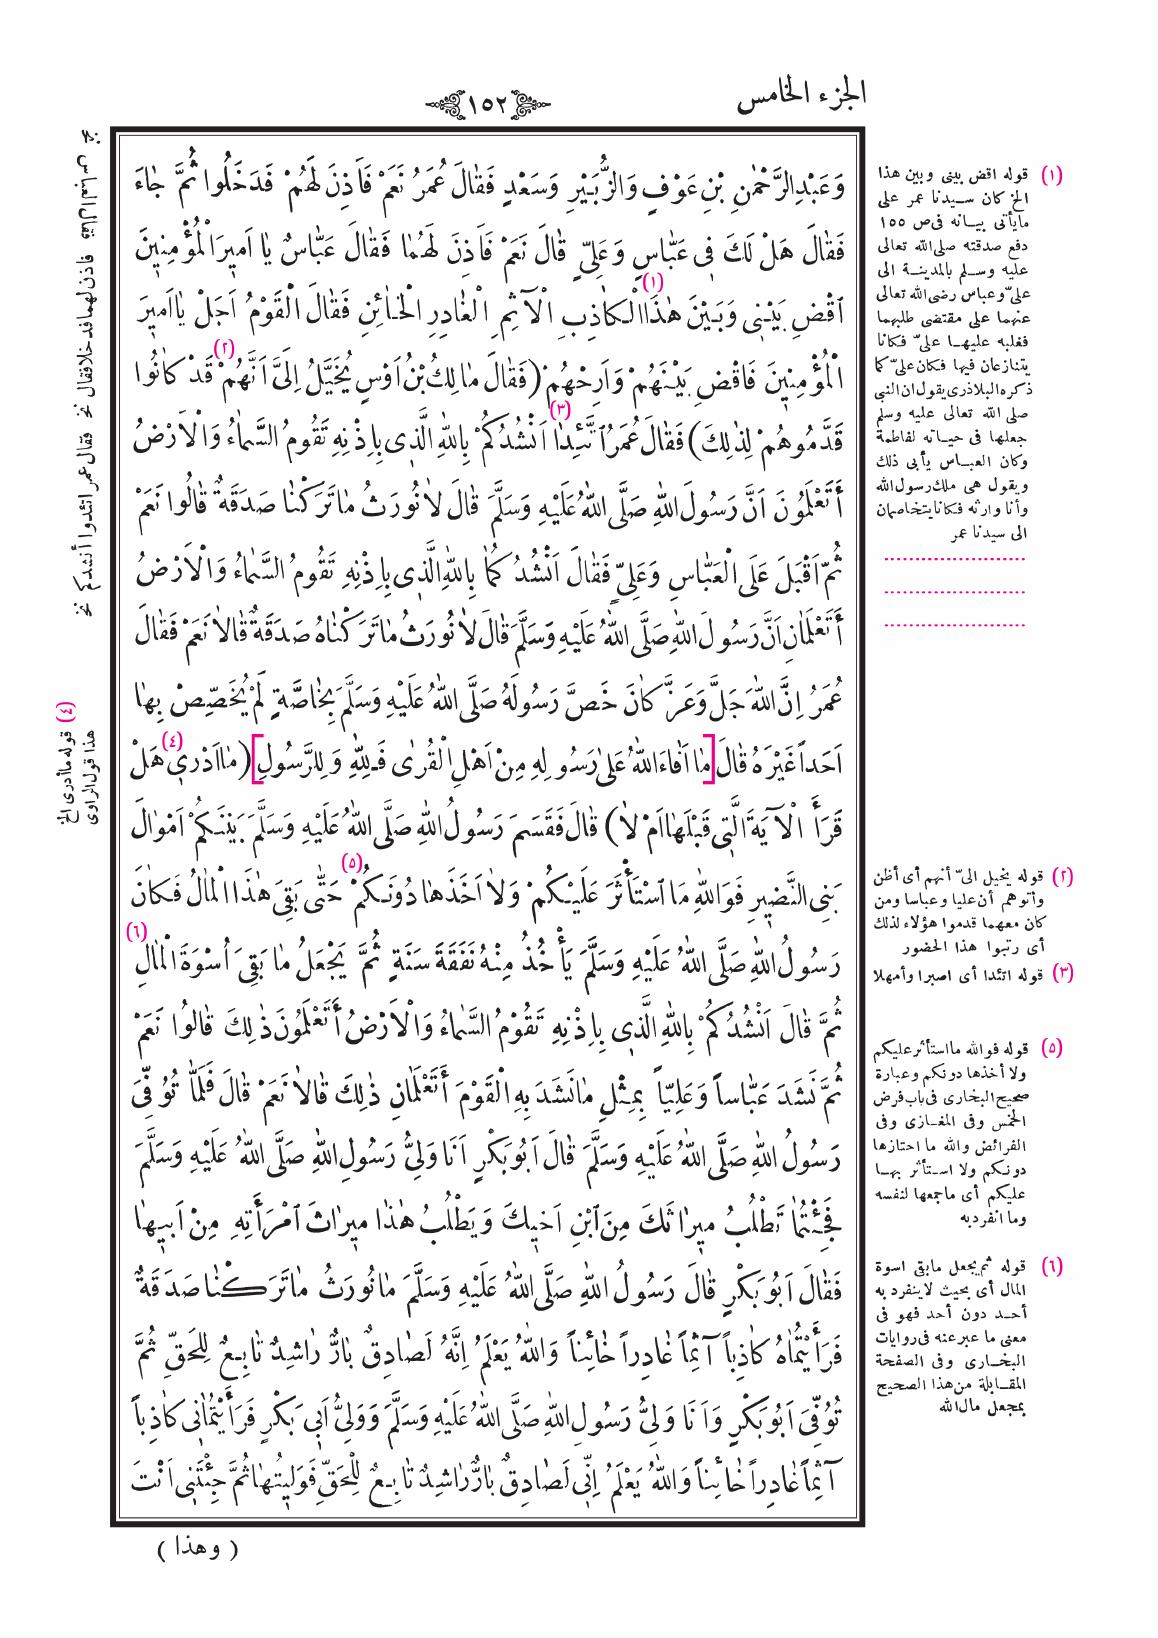 الجزء الخامس
١٥٢
وَعَبْدِالرَّحْمٰنِ بْنِ عَوْفٍ وَالزُّبَيْرِ وَسَعْدٍ فَقَالَ عُمَرُ نَعَمْ فَاَذِنَ لَهُمْ فَدَخَلُوا ثُمَّ جَاءَ
فَقَالَ هَلْ لَكَ فِى عَبَّاسٍ وَعَلِيٍّ قَالَ نَعَمْ فَاَذِنَ لَهُمَا فَقَالَ عَبَّاسٌ يَا اَمِيرَ الْمُؤْمِنِينَ
اَقْضِ بَيْنِى وَبَيْنَ هٰذَا (١) الْكَاذِبِ الْآثِمِ الْغَادِرِ الْخَائِنِ فَقَالَ الْقَوْمُ اَجَلْ يَا اَمِيرَ
الْمُؤْمِنِينَ فَاقْضِ بَيْنَهُمْ وَاَرِحْهُمْ (فَقَالَ مَالِكُ بْنُ اَوْسٍ يُخَيَّلُ اِلَىَّ اَنَّهُمْ (٢) قَدْ كَانُوا
قَدَّمُوهُمْ لِذٰلِكَ) فَقَالَ عُمَرُ اتَّئِدَا (٣) اَنْشُدُكُمْ بِاللّٰهِ الَّذِى بِاِذْنِهِ تَقُومُ السَّمَاءُ وَالْاَرْضُ
أَتَعْلَمُونَ اَنَّ رَسُولَ اللّٰهِ صَلَّى اللّٰهُ عَلَيْهِ وَسَلَّمَ قَالَ لَا نُورَثُ مَا تَرَكْنَا صَدَقَةٌ قَالُوا نَعَمْ
ثُمَّ اَقْبَلَ عَلَى الْعَبَّاسِ وَعَلِيٍّ فَقَالَ اَنْشُدُكُمَا بِاللّٰهِ الَّذِى بِاِذْنِهِ تَقُومُ السَّمَاءُ وَالْاَرْضُ
أَتَعْلَمَانِ اَنَّ رَسُولَ اللّٰهِ صَلَّى اللّٰهُ عَلَيْهِ وَسَلَّمَ قَالَ لَا نُورَثُ مَا تَرَكْنَاهُ صَدَقَةٌ قَالَا نَعَمْ فَقَالَ
عُمَرُ اِنَّ اللّٰهَ جَلَّ وَعَزَّ كَانَ خَصَّ رَسُولَهُ صَلَّى اللّٰهُ عَلَيْهِ وَسَلَّمَ بِخَاصَّةٍ لَمْ يُخَصِّصْ بِهَا
اَحَداً غَيْرَهُ قَالَ [مَا اَفَاءَ اللّٰهُ عَلٰى رَسُولِهِ مِنْ اَهْلِ الْقُرٰى فَلِلّٰهِ وَلِلرَّسُولِ] (مَا اَدْرِى (٤) هَلْ
قَرَأَ الْآيَةَ الَّتِى قَبْلَهَا اَمْ لَا) قَالَ فَقَسَمَ رَسُولُ اللّٰهِ صَلَّى اللّٰهُ عَلَيْهِ وَسَلَّمَ بَيْنَكُمْ اَمْوَالَ
بَنِى النَّضِيرِ فَوَاللّٰهِ مَا اسْتَأْثَرَ عَلَيْكُمْ وَلَا اَخَذَهَا دُونَكُمْ (٥) حَتّٰى بَقِىَ هٰذَا الْمَالُ فَكَانَ
رَسُولُ اللّٰهِ صَلَّى اللّٰهُ عَلَيْهِ وَسَلَّمَ يَأْخُذُ مِنْهُ نَفَقَةَ سَنَةٍ ثُمَّ يَجْعَلُ مَا بَقِىَ اُسْوَةَ الْمَالِ (٦)
ثُمَّ قَالَ اَنْشُدُكُمْ بِاللّٰهِ الَّذِى بِاِذْنِهِ تَقُومُ السَّمَاءُ وَالْاَرْضُ أَتَعْلَمُونَ ذٰلِكَ قَالُوا نَعَمْ
ثُمَّ نَشَدَ عَبَّاساً وَعَلِيّاً بِمِثْلِ مَا نَشَدَ بِهِ الْقَوْمَ أَتَعْلَمَانِ ذٰلِكَ قَالَا نَعَمْ قَالَ فَلَمَّا تُوُفِّىَ
رَسُولُ اللّٰهِ صَلَّى اللّٰهُ عَلَيْهِ وَسَلَّمَ قَالَ اَبُو بَكْرٍ اَنَا وَلِىُّ رَسُولِ اللّٰهِ صَلَّى اللّٰهُ عَلَيْهِ وَسَلَّمَ
فَجِئْتُمَا تَطْلُبُ مِيرَاثَكَ مِنَ ابْنِ اَخِيكَ وَيَطْلُبُ هٰذَا مِيرَاثَ امْرَأَتِهِ مِنْ اَبِيهَا
فَقَالَ اَبُو بَكْرٍ قَالَ رَسُولُ اللّٰهِ صَلَّى اللّٰهُ عَلَيْهِ وَسَلَّمَ مَا نُورَثُ مَا تَرَكْنَا صَدَقَةٌ
فَرَأَيْتُمَاهُ كَاذِباً آثِماً غَادِراً خَائِناً وَاللّٰهُ يَعْلَمُ اِنَّهُ لَصَادِقٌ بَارٌّ رَاشِدٌ تَابِعٌ لِلْحَقِّ ثُمَّ
تُوُفِّىَ اَبُو بَكْرٍ وَاَنَا وَلِىُّ رَسُولِ اللّٰهِ صَلَّى اللّٰهُ عَلَيْهِ وَسَلَّمَ وَوَلِىُّ اَبِى بَكْرٍ فَرَأَيْتُمَانِى كَاذِباً
آثِماً غَادِراً خَائِناً وَاللّٰهُ يَعْلَمُ اِنِّى لَصَادِقٌ بَارٌّ رَاشِدٌ تَابِعٌ لِلْحَقِّ فَوَلِيتُهَا ثُمَّ جِئْتَنِى اَنْتَ
( وهذا )
(١) قوله اقض بينى وبين هذا
الخ كان سيدنا عمر على
مايأتى بيانه فى ص ١٥٥
دفع صدقته صلى الله تعالى
عليه وسلم بالمدينة الى
علىّ وعباس رضى الله تعالى
عنهما على مقتضى طلبهما
فغلبه عليها علىّ فكانا
يتنازعان فيها فكان علىّ كما
ذكره البلاذرى يقول ان النبى
صلى الله تعالى عليه وسلم
جعلها فى حياته لفاطمة
وكان العباس يأبى ذلك
ويقول هى ملك رسول الله
وأنا وارثه فكانا يتخاصمان
الى سيدنا عمر
(٢) قوله يخيل الىّ أنهم أى أظن
وأتوهم أن عليا وعباسا ومن
كان معهما قدموا هؤلاء لذلك
أى رتبوا هذا الحضور
(٣) قوله اتئدا أى اصبرا وأمهلا
(٥) قوله فوالله مااستأثر عليكم
ولا أخذها دونكم وعبارة
صحيح البخارى فى باب فرض
الخمس وفى المغازى وفى
الفرائض والله ما احتازها
دونكم ولا استأثر بها
عليكم أى ماجمعها لنفسه
وما انفرد به
(٦) قوله ثم يجعل مابقى اسوة
المال أى بحيث لاينفرد به
أحد دون أحد فهو فى
معنى ما عبر عنه فى روايات
البخارى وفى الصفحة
المقابلة من هذا الصحيح
بمجعل مال الله
فاذن لهما فدخلا فقال نخ فقال عمر اتئدوا أنشدكم نخ
(٤) قوله ماأدرى الخ
هذا قول الراوى